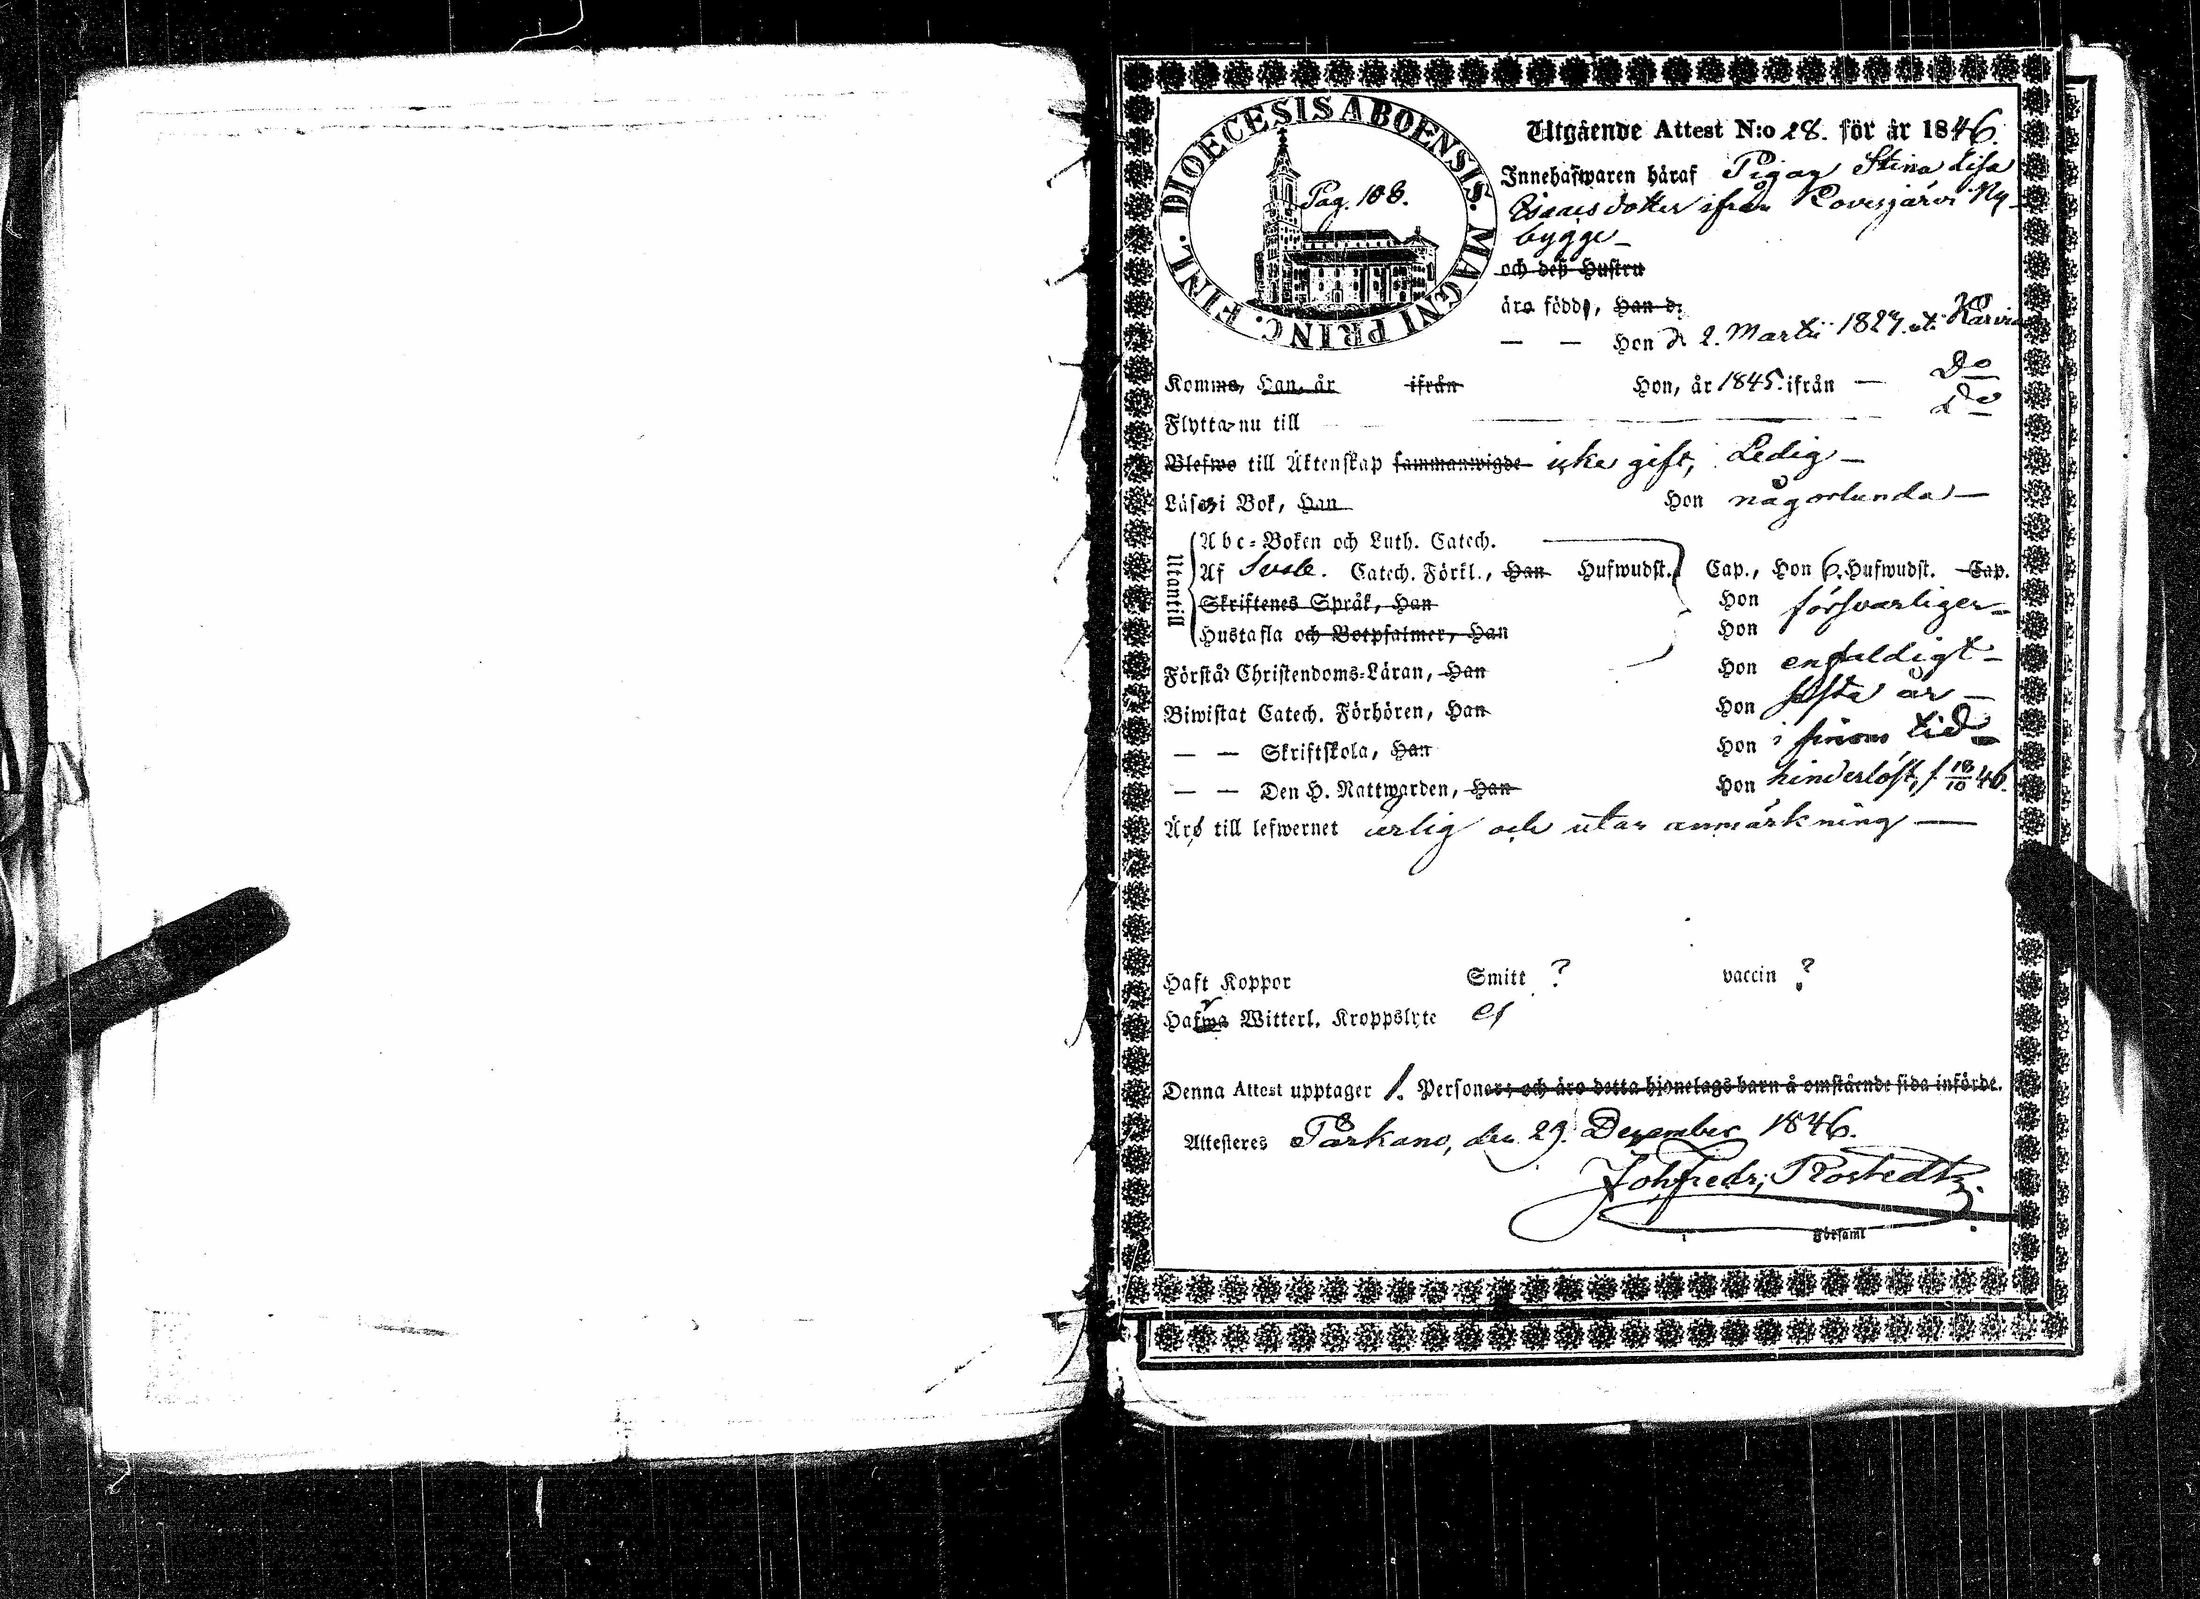 DIOECESIS ABOENSIS. MAGNI PRINC. FINL.
Pag. 108.
Utgående Attest N:o 28. för år 1846.
Innehafwaren häraf Pigan Stina Lisa
Esaiædotter ifrån Kovesjärvi Ny-
bygge
och deß Hustru
äro födde, Han d.
— — Hon d 2. Martii 1827. uti Karvia
Komme, Han, år ifrån Hon, år 1845. ifrån — Do
Flytta nu till Do
Blefwo till Äktenskap sammanwigde icke gift, Ledig —
Läsa i Bok, Han Hon någorlunda —
Utantill
Abc-Boken och Luth. Catech.
Af Sveb. Catech. Förkl., Han Hufwudst. Cap., Hon 6. Hufwudst. Cap.
Skriftenes Språk, Han Hon försvarligen
Hustafla och Botpsalmer, Han Hon
Förstår Christendoms-Läran, Han Hon enfaldigt —
Biwistat Catech. Förhören, Han Hon sista år —
— — Skriftskola, Han Hon i sinom tid
— — Den H. Nattwarden, Han Hon hinderlöst, s. 18/10 46.
Äro till lefwernet ärlig och utan anmärkning —
Haft Koppor Smitt ? vaccin ?
Hafwa Witterl. Kroppslyte ej
Denna Attest upptager 1. Personer, och äro detta hjonelags barn å omstående sida införde.
Attesteres Parkano, den 29. December 1846.
Joh. Fredr. Rostedt
i Församl